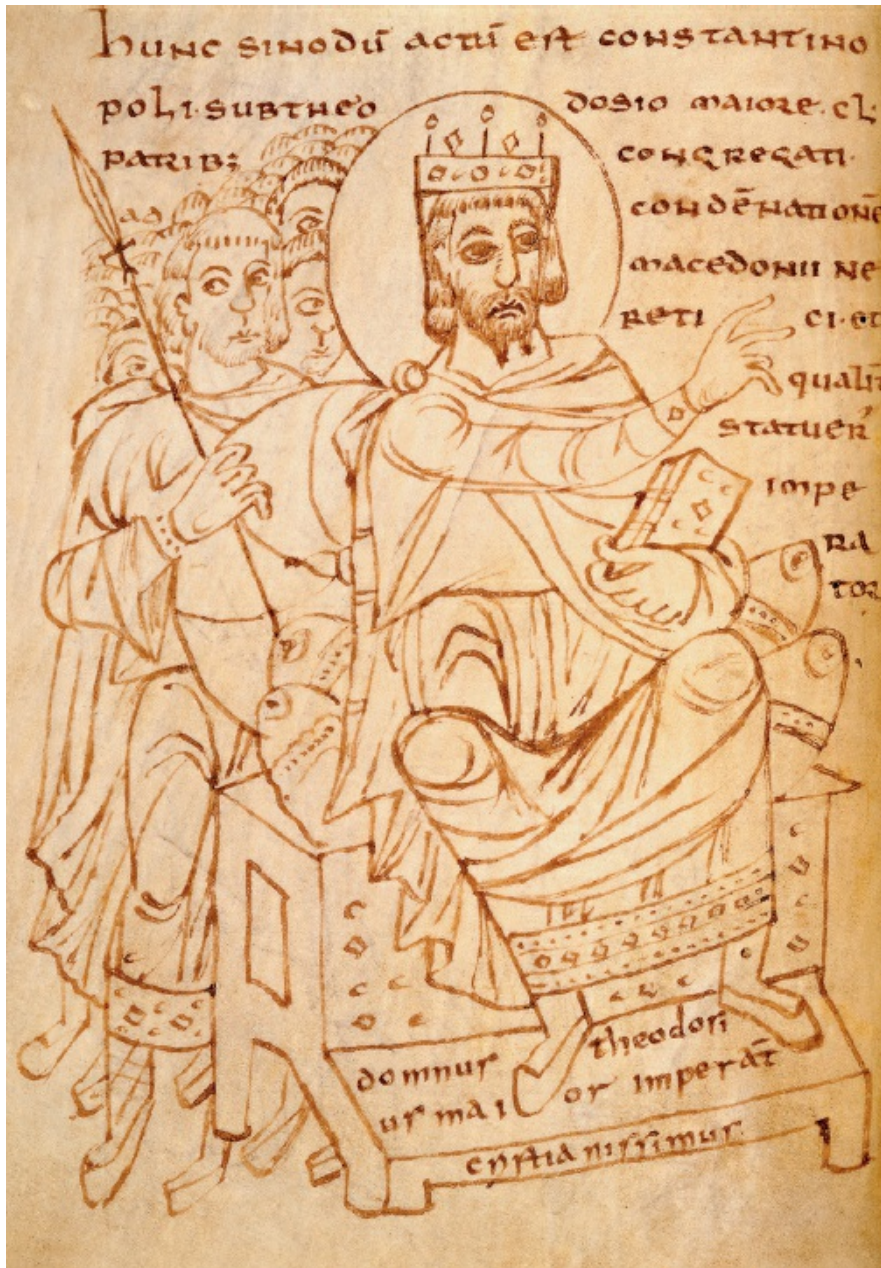 hunc sinodū actū est constantino
poli · subtheo dosio maiore · cl ·
patrib; congregati ·
ad condēnationē
macedonii he
reti ci · et
qualit̄
statuer̄
impe
ra
tor
domnus theodosi
us mai or imperat̄
cristianissimus